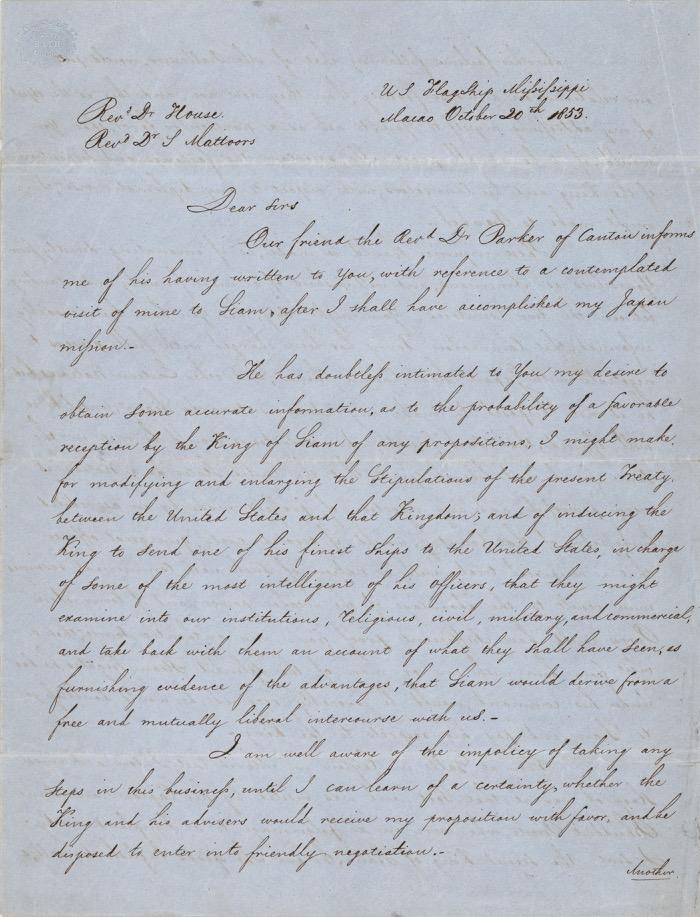 U S Flagship Mississippi
Macao October 20th 1853.
Revd Dr House.
Revd Dr S Mattoors
Dear Sirs
Our friend the Revd Dr Parker of Canton informs
me of his having written to You, with reference to a contemplated
visit of mine to Siam, after I shall have accomplished my Japan
mission.-
He has doubtless intimated to You my desire to
obtain some accurate information, as to the probability of a favorable
reception by the King of Siam of any propositions, I might make
for modifying and enlarging the Stipulations of the present Treaty.
between the United States and that Kingdom; and of inducing the
King to send one of his finest Ships to the United States, in charge
of some of the most intelligent of his Officers, that they might
examine into our institutions, religious, civil, military, and commercial,
and take back with them an account of what they shall have seen, as
furnishing evidence of the advantages, that Siam would derive from a
free and mutually liberal intercourse with us.-
I am well aware of the impolicy of taking any
steps in this business, until I can learn of a certainty, whether the
King and his advisers would receive my proposition with favor, and be
disposed to enter into friendly negotiation.-
Another.